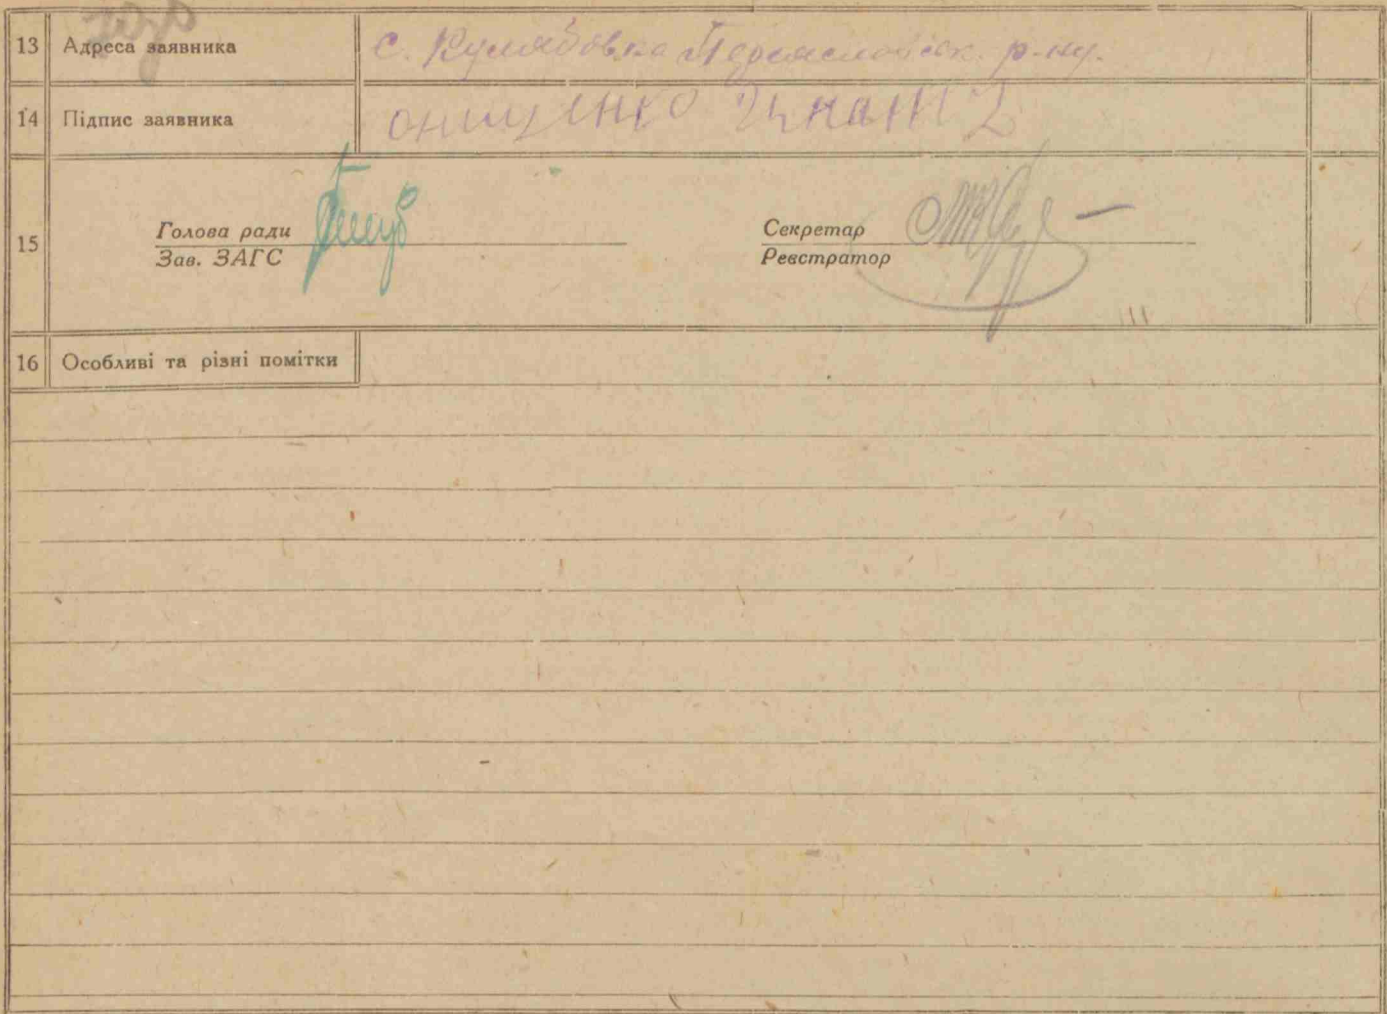 13 Адреса заявника с. Кулябовка Переяславск. р-ну.
14 Підпис заявника онищенко Игнат
15 Голова ради Секретар
Зав. ЗАГС Реєстратор
16 Особливі та різні помітки